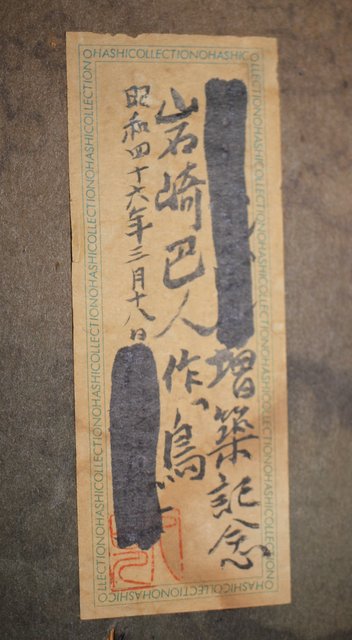 増築記念
岩崎巴人作、鳥
昭和四十六年三月十八日
OHASHICOLLECTIONOHASHIC
OHASHICOLLECTIONOHASHICOLLECTIONOHASHICOLLECTION